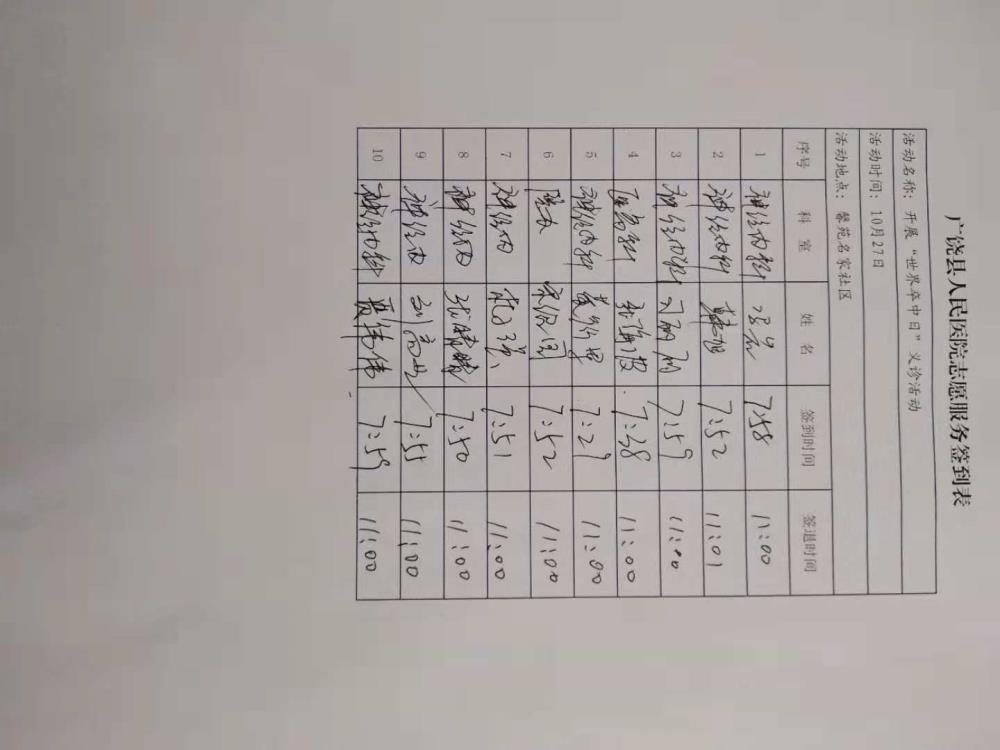 广饶县人民医院志愿服务签到表
活动名称：开展“世界卒中日”义诊活动
活动时间：10月27日
活动地点：馨苑名家社区
序号 科室 姓名 签到时间 签退时间
1 神经内科 7:58 11:00
2 神经内科 韩旭 7:52 11:01
3 神经内科 7:59 11:00
4 7:38 11:00
5 神经内科 7:29 11:00
6 7:52 11:00
7 神经内 7:51 11:00
8 神经内 张晴晴 7:50 11:00
9 神经内 7:55 11:00
10 神经内科 聂伟伟 7:59 11:00